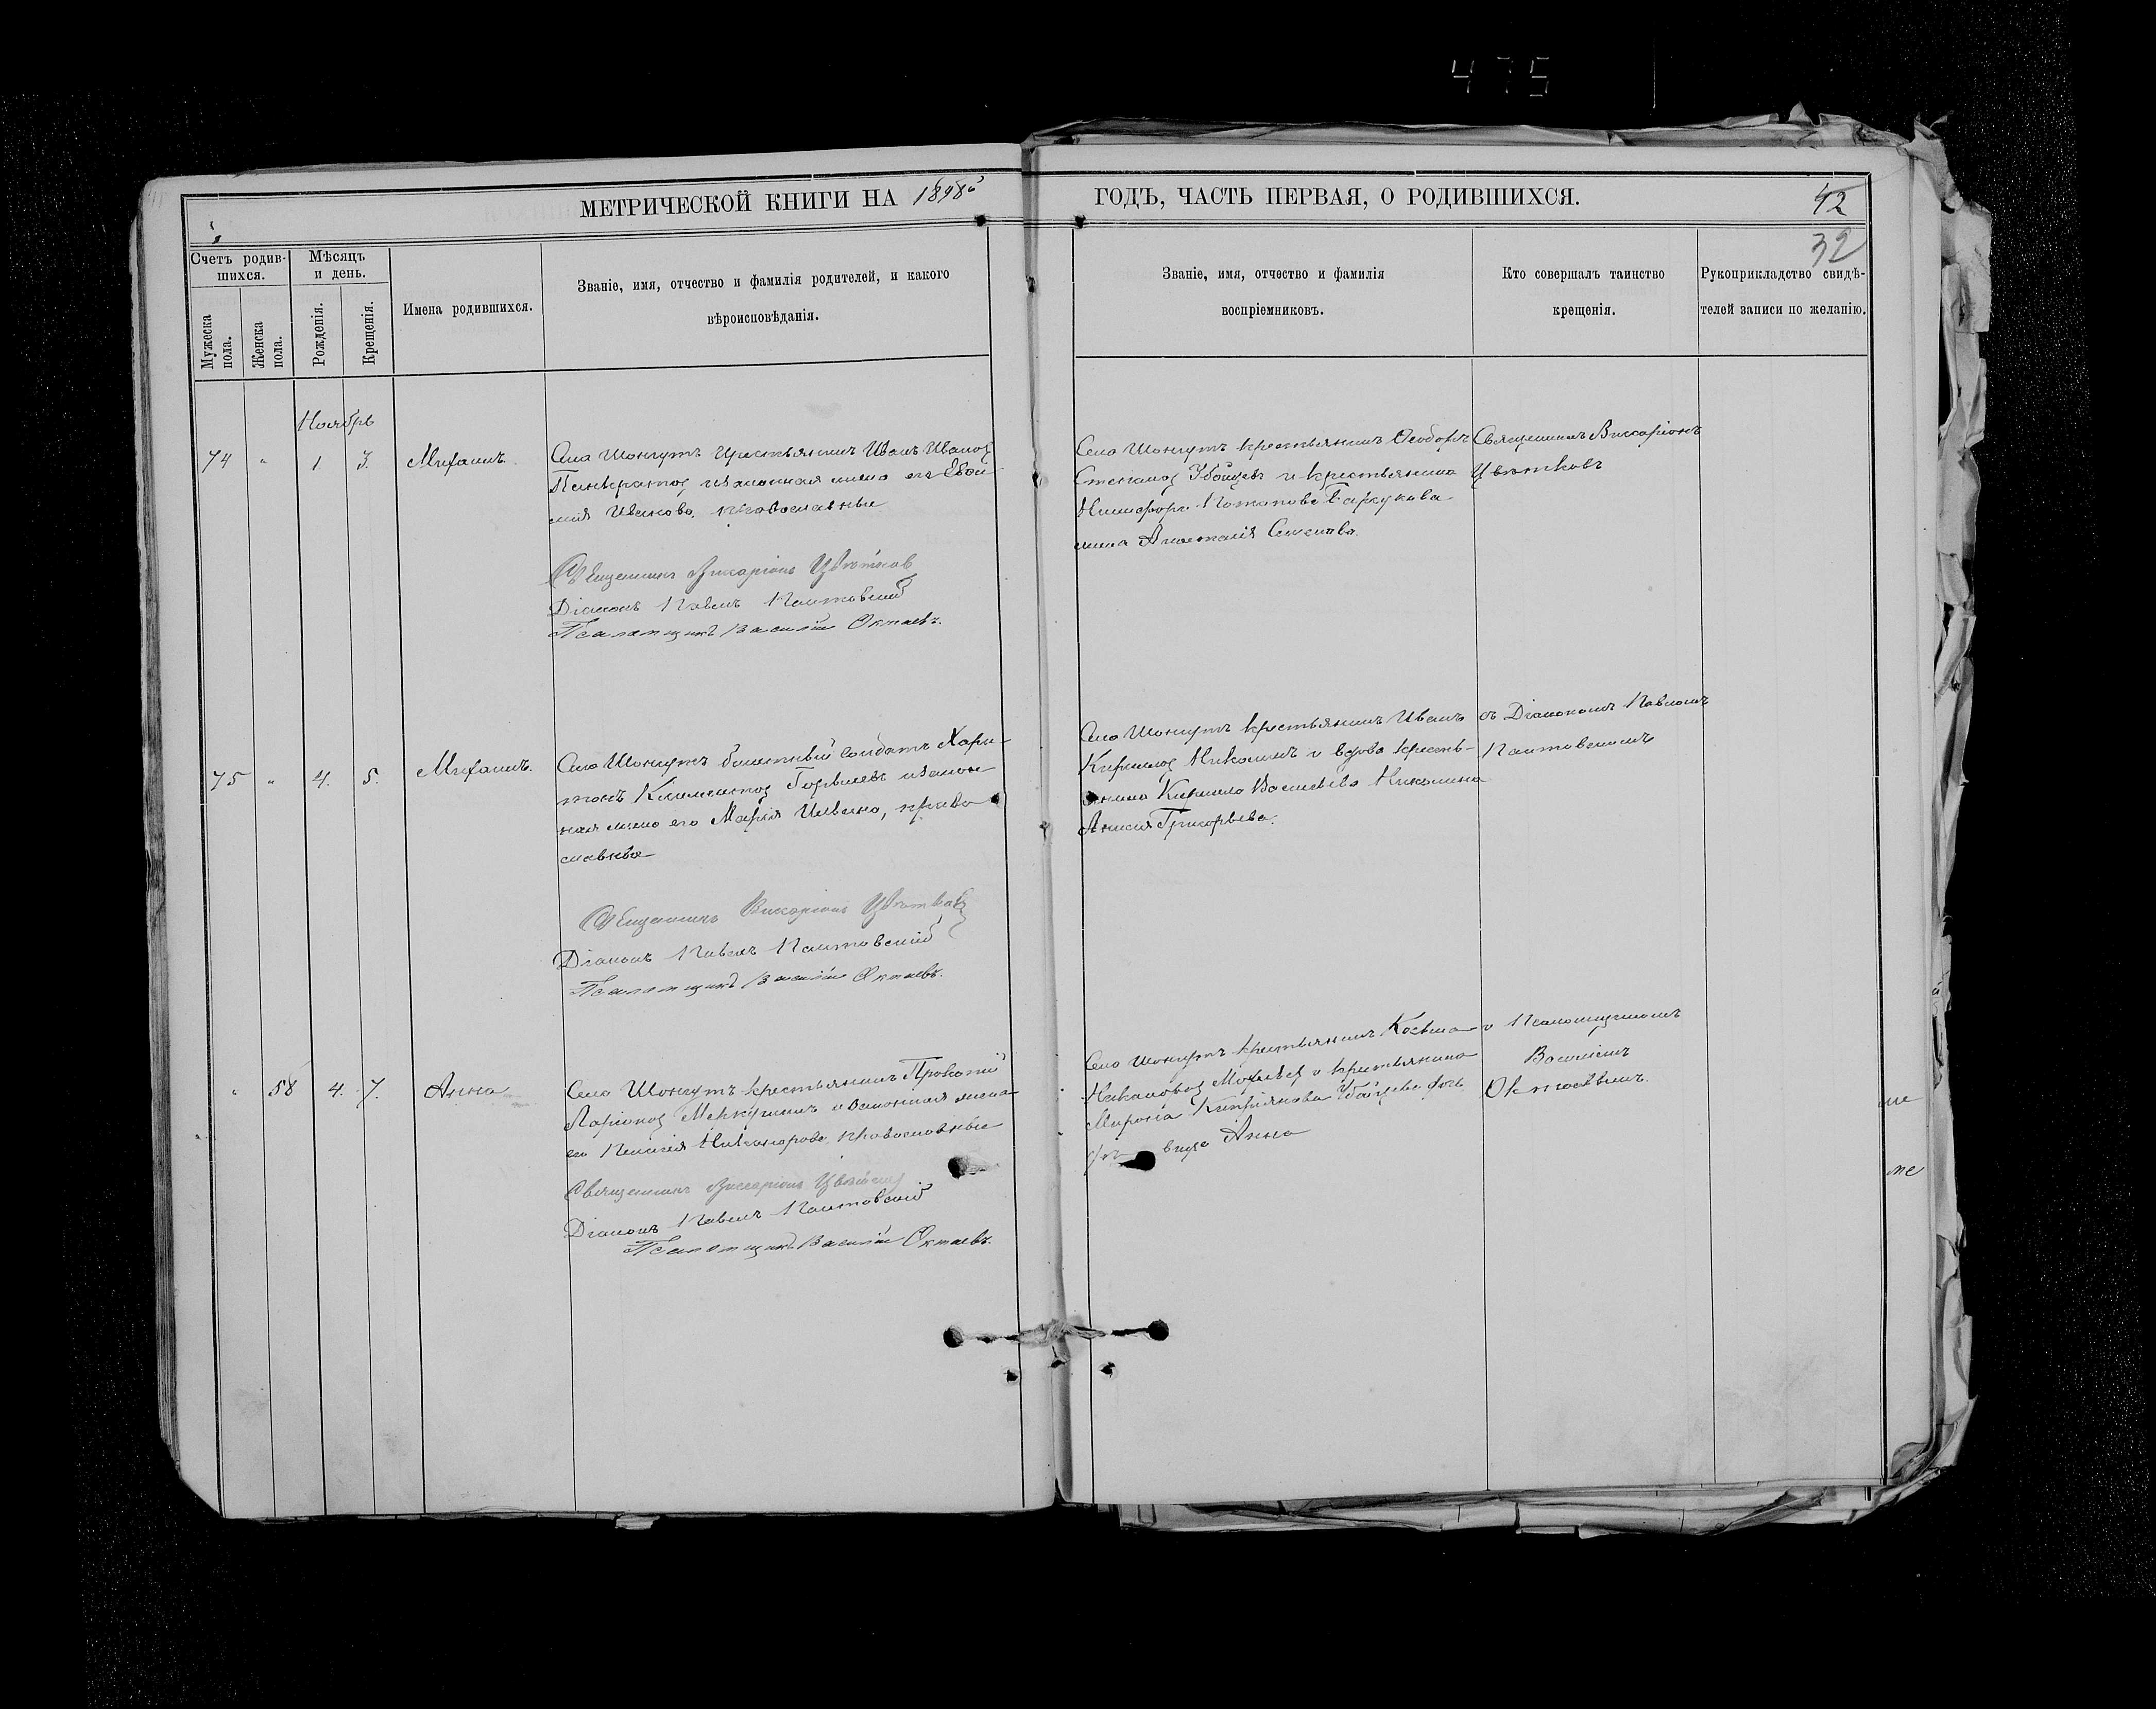 475
МЕТРИЧЕСКОЙ КНИГИ НА 1898й ГОДЪ, ЧАСТЬ ПЕРВАЯ, О РОДИВШИХСЯ.
42
32
Счетъ родившихся.
Мужеска пола.
Женска пола.
Мѣсяцъ и день.
Рожденія.
Крещенія.
Имена родившихся.
Званіе, имя, отчество и фамилія родителей, и какого
вѣроисповѣданія.
Званіе, имя, отчество и фамилія
воспріемниковъ.
Кто совершалъ таинство
крещенія.
Рукоприкладство свидѣ-
телей записи по желанію.
Ноябрь
74 " 1 3. Михаилъ.
Села Шонгутъ крестьянинъ Иванъ Иванов
Панкратов и законная жена его
Иванова, православные
Священникъ Виссаріонъ Цвѣтков
Діаконъ Павелъ
Псаломщикъ Василій Октаевъ.
Село Шонгутъ крестьянинъ Ѳеодоръ
Степанов Убойцевъ и крестьянина
Никифора Потапова
жена Анастасія
Священникъ Виссаріонъ
Цвѣтковъ
75 " 4. 5. Михаилъ.
Села Шонгутъ билетный солдатъ Хари-
тонъ Климентов и закон-
ная жена его Марія право
славные
Священникъ Виссаріонъ Цвѣтков
Діаконъ Павелъ
Псаломщикъ Василій Октаевъ.
Село Шонгутъ крестьянинъ Иванъ
Кирилов Никалинъ и вдова кресть-
янина Кирилла Васильева Никалина
Анисія Григорьева.
съ Діакономъ Павломъ
" 58 4. 7. Анна
Село Шонгутъ крестьянинъ Прокопій
Ларіонов Меркушинъ и законная жена
его Никанорова, православные
Священникъ Виссаріонъ Цвѣтков
Діаконъ Павелъ
Псаломщикъ Василій Октаевъ.
Село Шонгутъ крестьянинъ Козьма
Никаноров и крестьянина
Мирона Кипріянова Убойцева дочь
Анна
и Псаломщикомъ
Василіемъ
Октаевымъ.